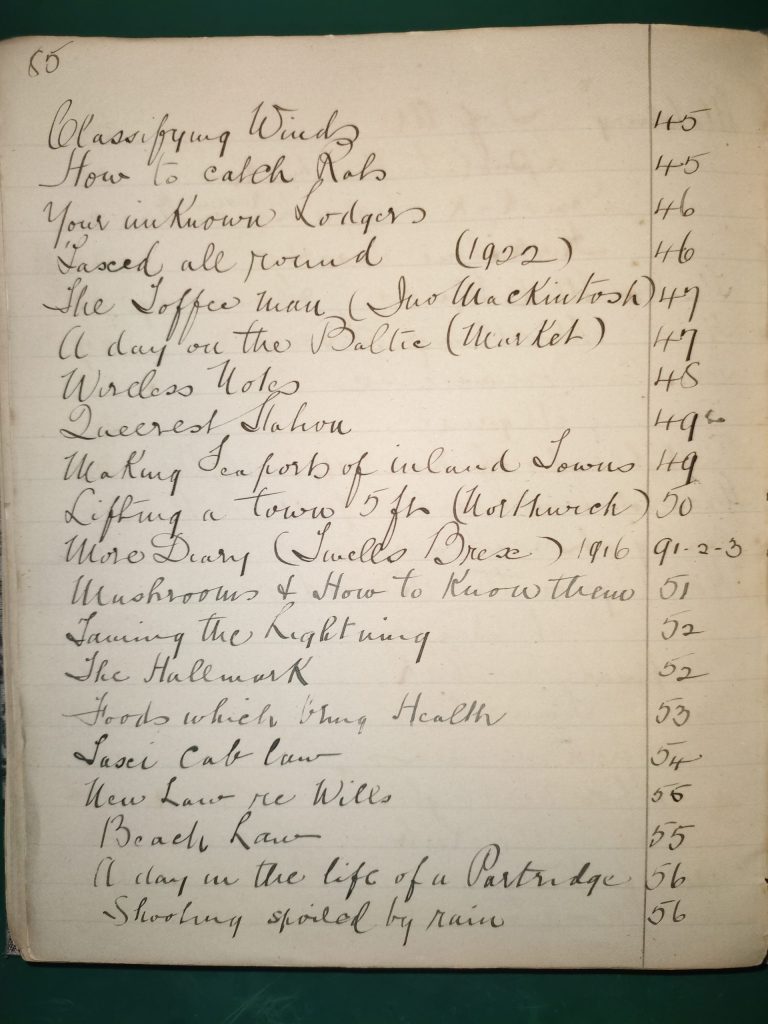 85
Classifying Winds 45
How to catch Rats 45
Your unKnown Lodgers 46
Taxed all round (1922) 46
The Toffee man (Jno Mackintosh) 47
A day on the Baltic (Market) 47
Wireless Notes 48
Queerest Station 49
Making Seaports of inland Towns 49
Lifting a town 5 ft (Northwich) 50
More Diary (Twells Brex) 1916 91-2-3
Mushrooms & How to Know them 51
Taming the Lightning 52
The Hallmark 52
Foods which bring Health 53
Taxi cab law 54
New Law re Wills 55
Beach Law 55
A day in the life of a Partridge 56
Shooting spoiled by rain 56